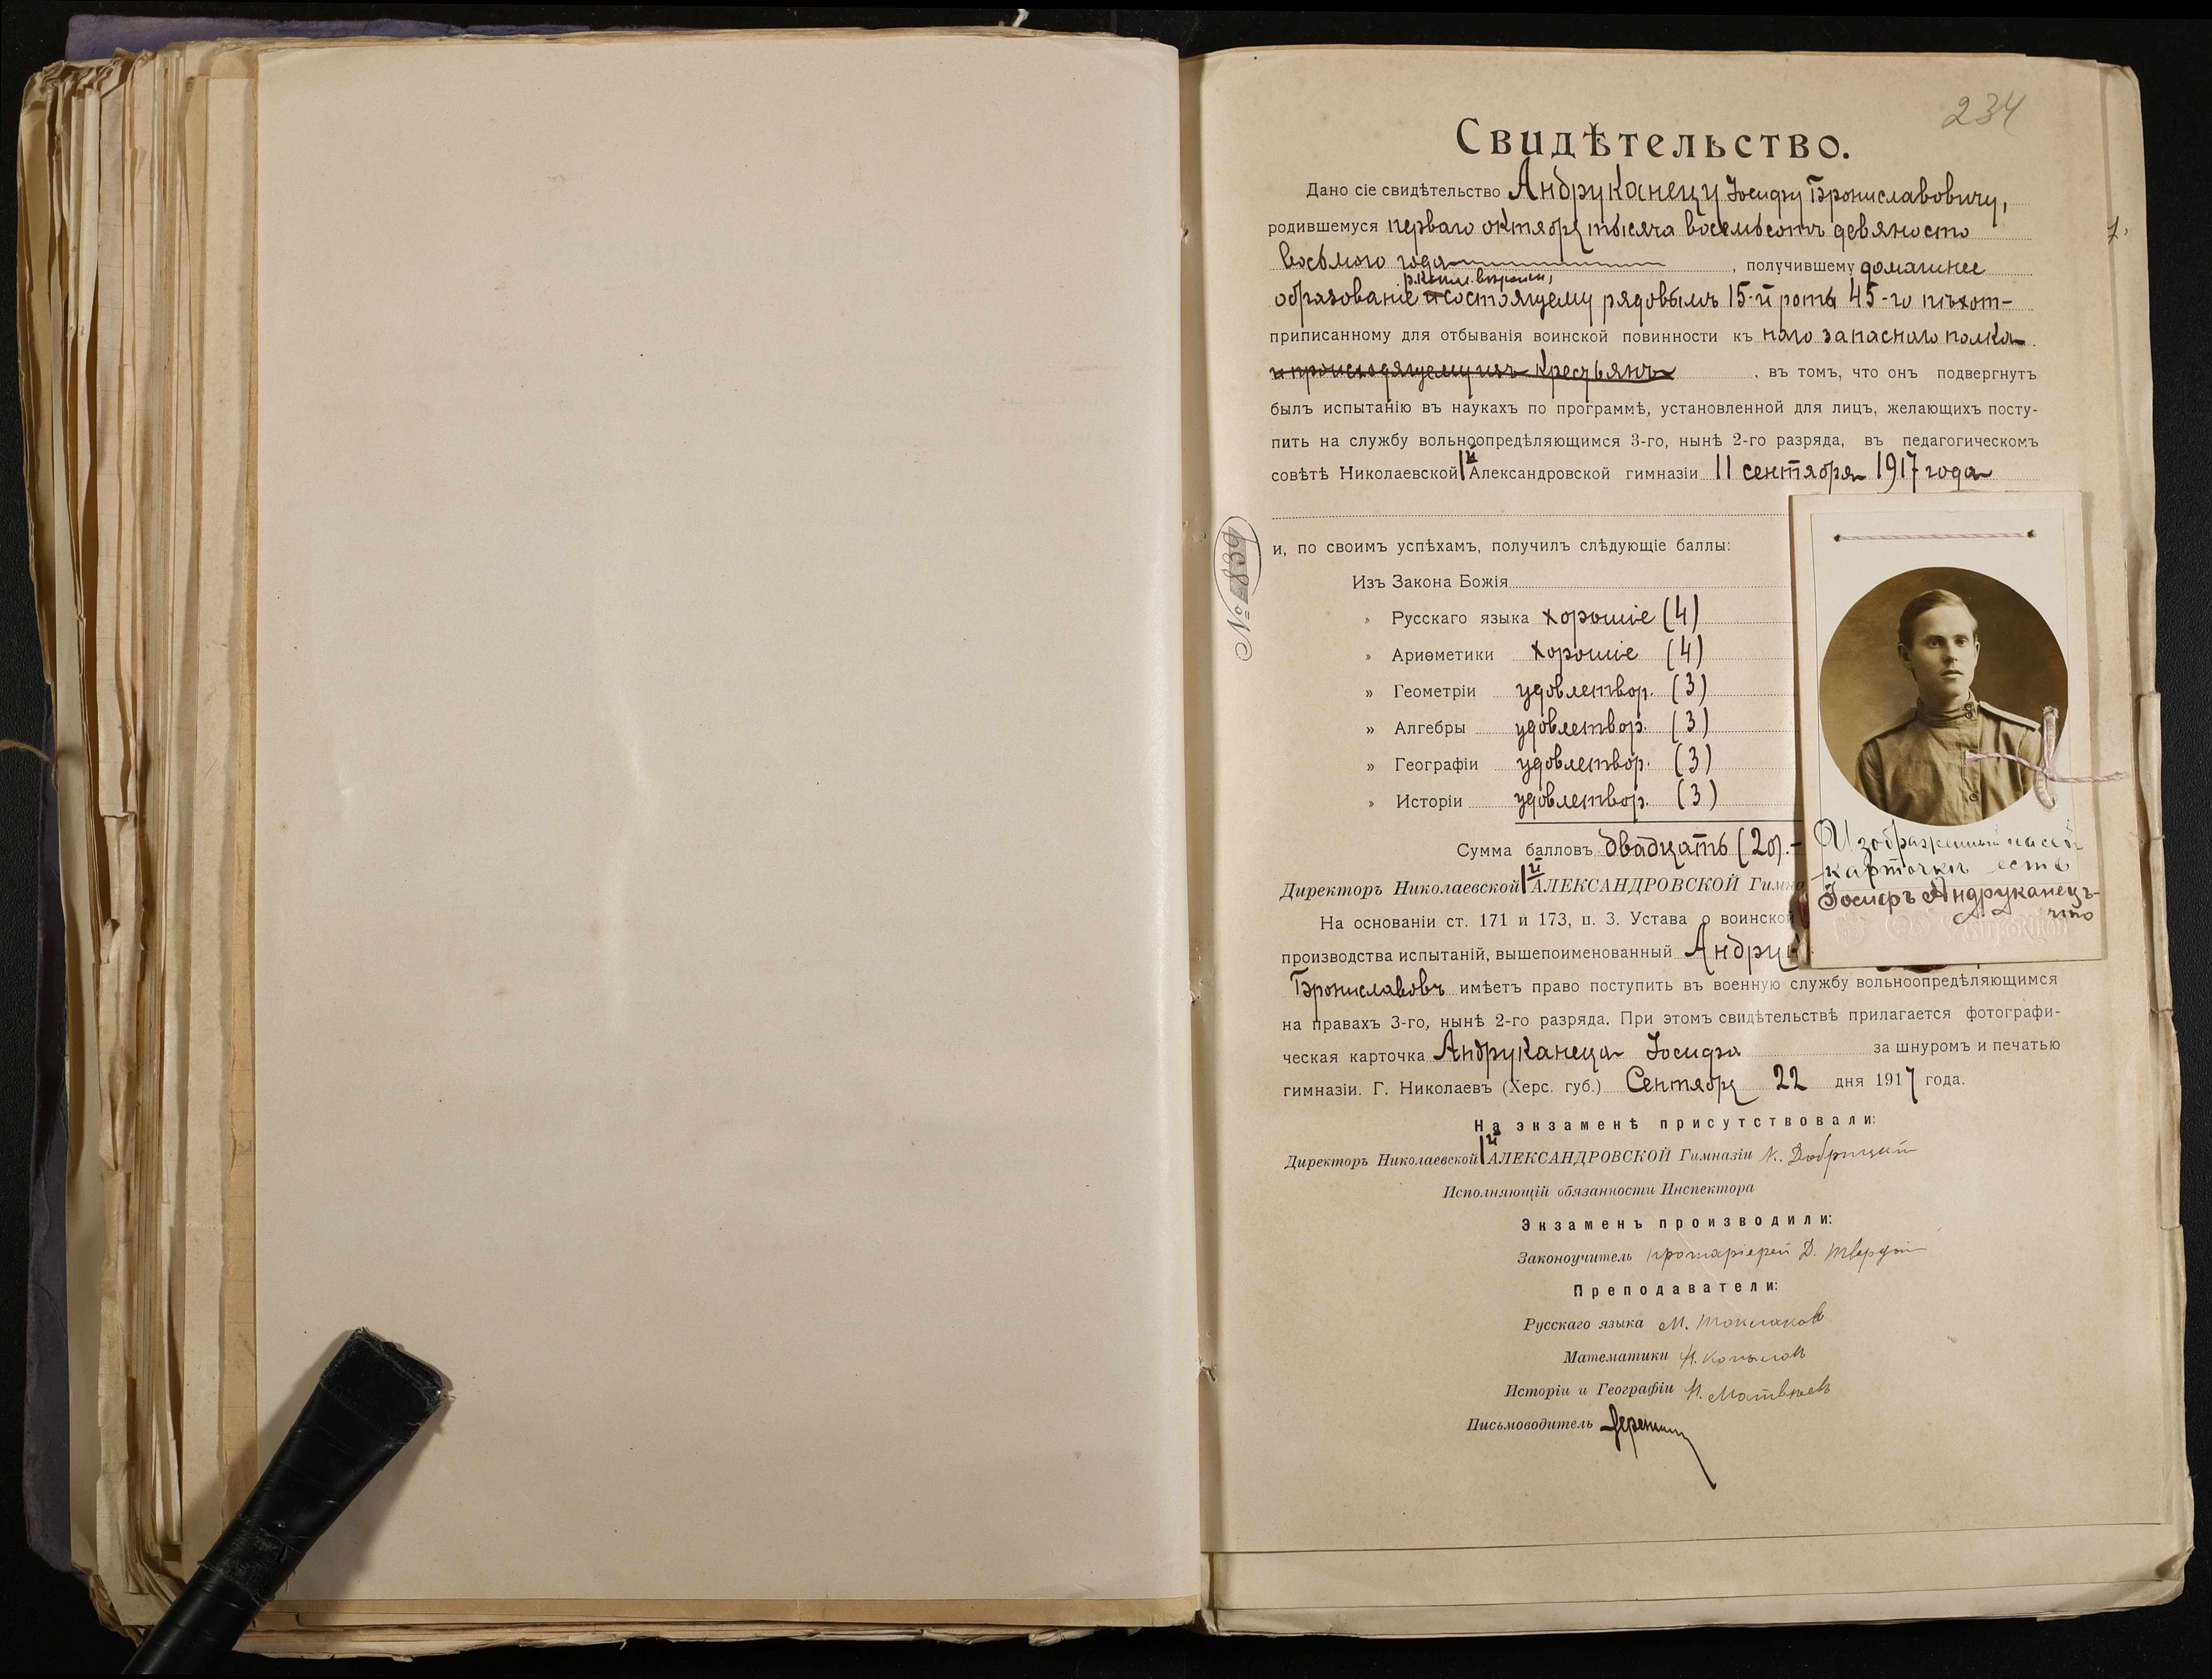 234
Свидѣтельство.
Дано сіе свидѣтельство Андруканецу Іосифу Брониславовичу,
родившемуся перваго октября тысяча восемьсотъ девяносто
восьмого года, получившему домашнее
образованіе состоящему рядовымъ 15-й роты 45-го пѣхот-
приписанному для отбыванія воинской повинности къ наго запаснаго полка.
и происходящему изъ крестьянъ, въ томъ, что онъ подвергнутъ
былъ испытанію въ наукахъ по программѣ, установленной для лицъ, желающихъ посту-
пить на службу вольноопредѣляющимся 3-го, нынѣ 2-го разряда, въ педагогическомъ
совѣтѣ Николаевской 1й Александровской гимназіи 11 сентября 1917 года
и, по своимъ успѣхамъ, получилъ слѣдующіе баллы:
Изъ Закона Божія
» Русскаго языка хорошіе (4)
» Ариѳметики хорошіе (4)
» Геометріи удовлетвор. (3)
» Алгебры удовлетвор. (3)
» Географіи удовлетвор. (3)
» Исторіи удовлетвор. (3)
Сумма балловъ двадцать (20).-
Директоръ Николаевской 1й АЛЕКСАНДРОВСКОЙ Гимна
На основаніи ст. 171 и 173, п. 3. Устава о воинской
производства испытаній, вышепоименованный Андру
Брониславовъ имѣетъ право поступить въ военную службу вольноопредѣляющимся
на правахъ 3-го, нынѣ 2-го разряда. При этомъ свидѣтельствѣ прилагается фотографи-
ческая карточка Андруканеца Іосифа за шнуромъ и печатью
гимназіи. Г. Николаевъ (Херс. губ.) Сентября 22 дня 1917 года.
На экзаменѣ присутствовали:
Директоръ Николаевской 1й АЛЕКСАНДРОВСКОЙ Гимназіи Н. Добрицкій
Исполняющій обязанности Инспектора
Экзаменъ производили:
Законоучитель протоіерей Д.
Преподаватели:
Русскаго языка М.
Математики Н. Копылов
Исторіи и Географіи Н. Матвѣевъ
Письмоводитель
№ 839
Изображенный на сей
карточкѣ есть
Іосифъ Андруканецъ-
что